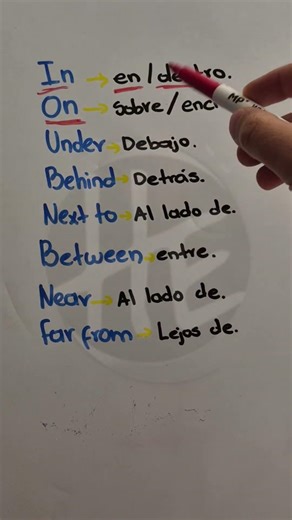 In → en / dentro.
On → sobre / enci
Under → Debajo.
Behind → Detrás.
Next to → Al lado de.
Between → entre.
Near → Al lado de.
Far from → Lejos de.